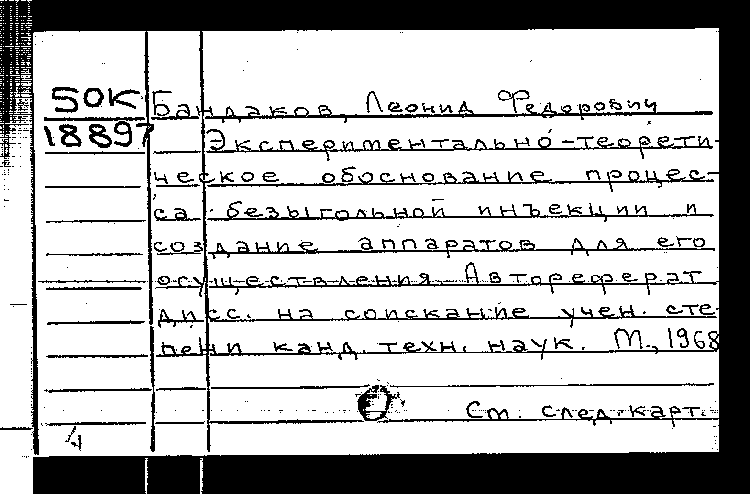 50К Бандаков, Леонид Федорович
18897 Экспериментально-теорети-
ческое обоснование процес-
са безыгольной инъекции и
создание аппаратов для его
осуществления. Автореферат
дисс. на соискание учен. сте-
пени канд. техн. наук. М., 1968
См. след. карт.